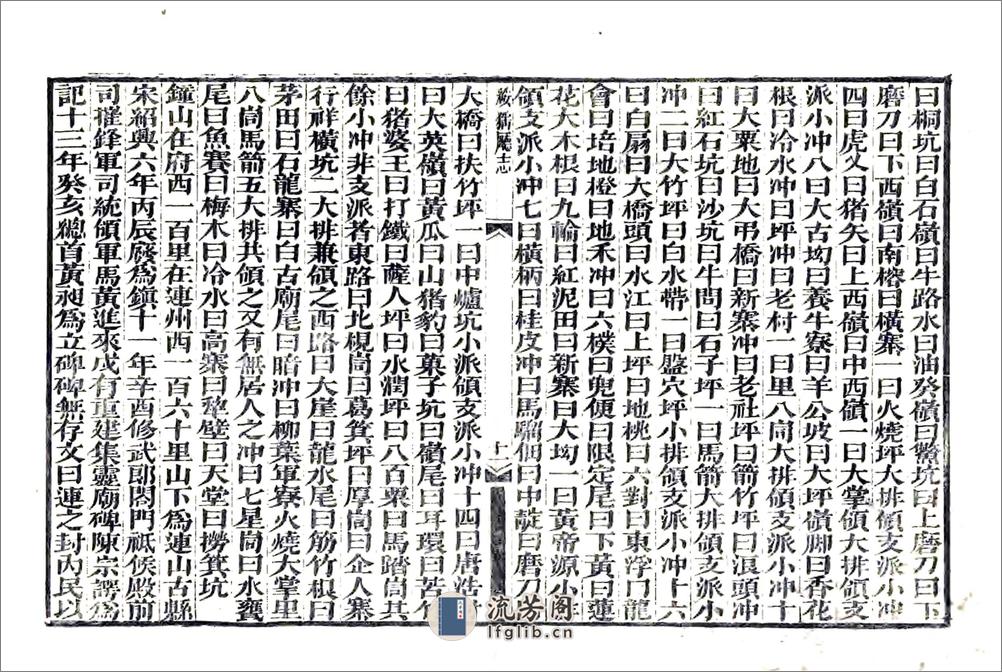 曰桐坑曰白石嶺曰牛路水曰油癸嶺曰鷩坑曰上磨刀曰下
磨刀曰下西嶺曰南榕曰橫寨一曰火燒坪大排領支派小冲
四曰虎乂曰猪矢曰上西嶺曰中西嶺一曰大掌領大排領支
派小冲八曰大古坳曰養牛寮曰羊公坡曰大坪嶺脚曰香花
根曰冷水冲曰坪冲曰老村一曰里八峝大排領支派小冲十
曰大粟地曰大弔橋曰新寨冲曰老社坪曰箭竹坪曰浪頭冲
曰紅石坑曰沙坑曰牛問曰石子坪一曰馬箭大排領支派小
冲二曰大竹坪曰白水㥍一曰盤穴坪小排領支派小冲十六
曰白扇曰大橋頭曰水江曰上坪曰地桃曰六對曰東浮冂龍
會曰培地橙曰地禾冲曰六樸曰兜便曰限定尾曰下黃曰蓮
花大木根曰九輪曰紅泥田曰新寨曰大坳一曰黃帝源小排
領支派小冲七曰橫柄曰桂皮冲曰馬騮佃曰中靛曰磨刀坑曰
綏猺廳志
上
大橋曰扶竹坪一曰中爐坑小派領支派小冲十四曰唐浩
曰大英嶺曰黃瓜曰山猪豹曰菓子坑曰嶺尾曰耳環曰苦竹
曰猪婆王曰打鐵曰薩人坪曰水澗坪曰八百粟曰馬踏峝共
餘小冲非支派者東路曰北梘峝曰葛箕坪曰厚峝曰企人寨
行祥橫坑二大排兼領之西路曰大崖曰龍水尾曰筋竹根曰
茅田曰石龍寨曰白古廟尾曰暗冲曰柳葉軍寮火燒大掌里
八峝馬箭五大排共領之又有無居人之冲曰七星峝曰水甕
尾曰魚賽曰梅木曰冷水曰高寨曰犂壁曰天堂曰撈箕坑
鐘山在府西一百里在連州西一百六十里山下爲連山古縣
宋紹興六年丙辰廢爲鎮十一年辛酉修武郎閤門祗候殿前
司摧鋒軍司統領軍馬黃進來戍有重建集靈廟碑陳宗諤爲
記十三年癸亥總首黃昶爲立碑碑無存文曰連之封內民以
流芳阁
lfglib.cn